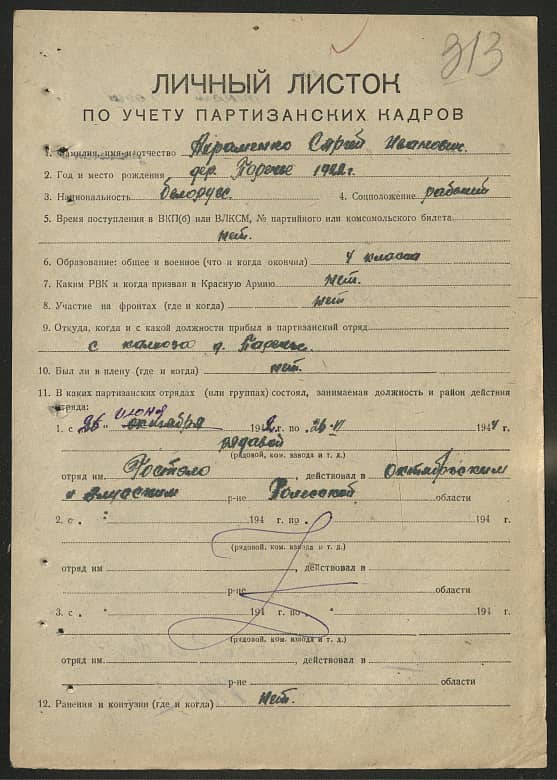 313
ЛИЧНЫЙ ЛИСТОК
ПО УЧЕТУ ПАРТИЗАНСКИХ КАДРОВ
1. Фамилия, имя и отчество Авраменко Сергей Иванович.
2. Год и место рождения дер. Поречье 1922 г.
3. Национальность белорусс. 4. Соцположение рабочий
5. Время поступления в ВКП(б) или ВЛКСМ, № партийного или комсомольского билета
нет.
6. Образование: общее и военное (что и когда окончил) 4 класса
7. Каким РВК и когда призван в Красную Армию нет.
8. Участие на фронтах (где и когда) нет
9. Откуда, когда и с какой должности прибыл в партизанский отряд
с колхоза д. Поречье.
10. Был ли в плену (где и когда) нет.
11. В каких партизанских отрядах (или группах) состоял, занимаемая должность и район действия
отряда: июня
1. с „26“ октября 1942 г. по 26-VI 1944 г.
рядавой
(рядовой, ком. взвода и т. д.)
отряд им. Гостело, действовал в октябрьским
и Глусским р-не Полесской области
2. с „ “ 194 г. по „ “ 194 г.
(рядовой, ком. взвода и т. д.)
отряд им. , действовал в
р-не области
3. с „ “ 194 г. по „ “ 194 г.
(рядовой, ком. взвода и т. д.)
отряд им. , действовал в
р-не области
12. Ранения и контузии (где и когда) нет.